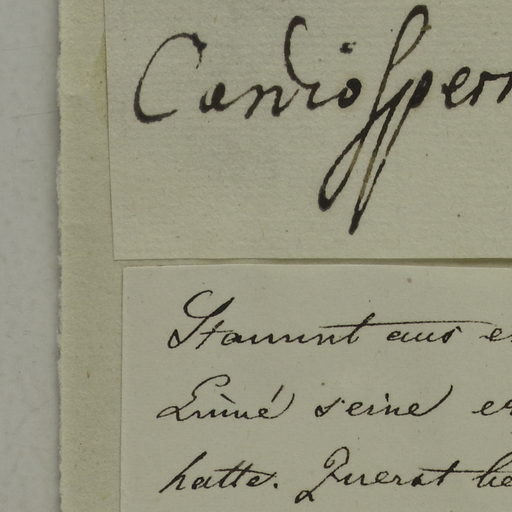 Cardiosperm
Stammt aus e
Linné seine er
hatte. Zuerst be